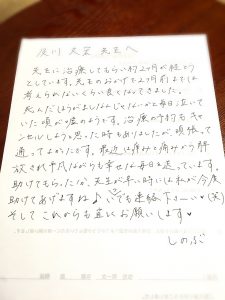 及川 久栄 先生へ
先生に治療してもらい約2ヶ月が経とう
としています。先生のおかげで2ヶ月前までは
考えられないくらい良くなってきました。
死んだほうがましなんじゃないかと毎日泣いて
いた頃がウソのようです。治療の予約もキャ
ンセルしようと思った時もありましたが、頑張って
通ってよかったです。最近は痛みと痛みから解
放され平凡ながらも幸せな毎日を送っています。
助けてもらったので、先生が辛い時には私が今度
助けてあげますね♪いつでも連絡下さーい♥(笑)
そしてこれからも宜しくお願いします♥
しのぶ